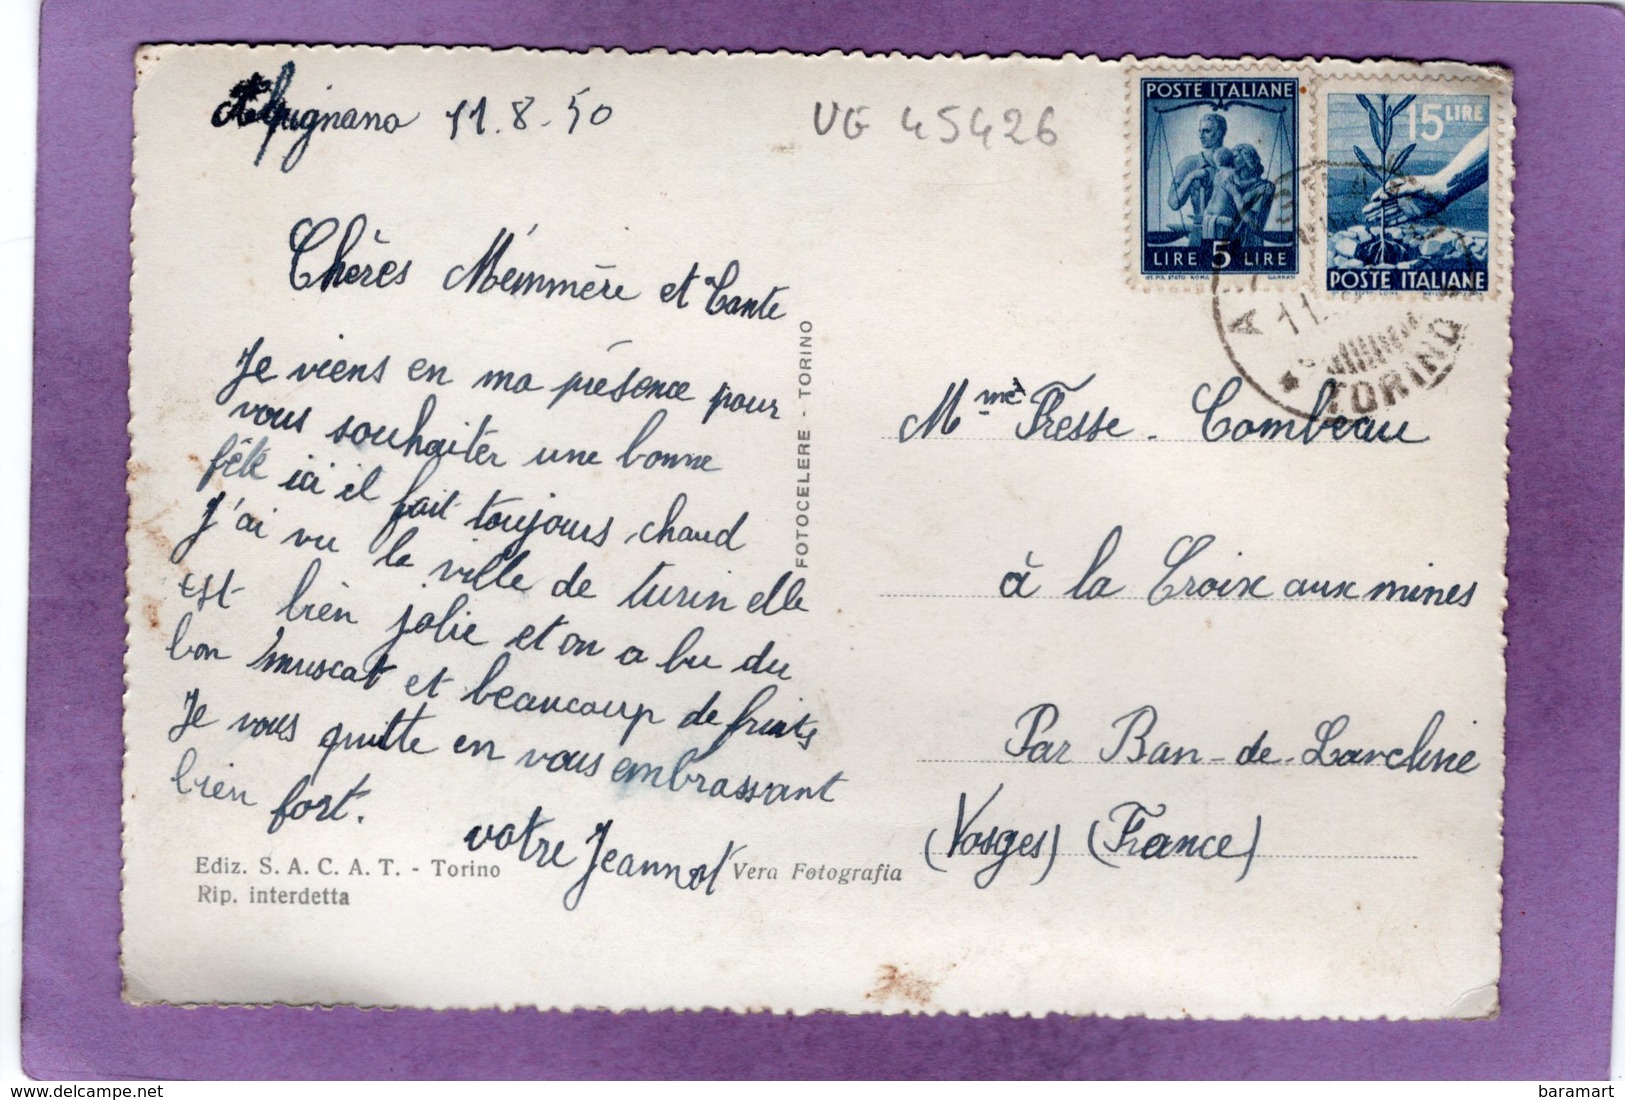 Alpignano 11.8.50
VG 45426
Chères Mémmère et Tante
Je viens en ma présence pour
vous souhaiter une bonne
fête ici il fait toujours chaud
J'ai vu la ville de turin elle
est bien jolie et on a bu du
bon muscat et beaucoup de fruits
Je vous quitte en vous embrassant
bien fort.
votre Jeannot
Ediz. S. A. C. A. T. - Torino
Rip. interdetta
Vera Fotografia
FOTOCELERE - TORINO
POSTE ITALIANE
LIRE 5 LIRE
15 LIRE
POSTE ITALIANE
TORINO
Mme Fresse - Combeau
à la Croix aux mines
Par Ban-de-Laveline
(Vosges) (France)
baramart